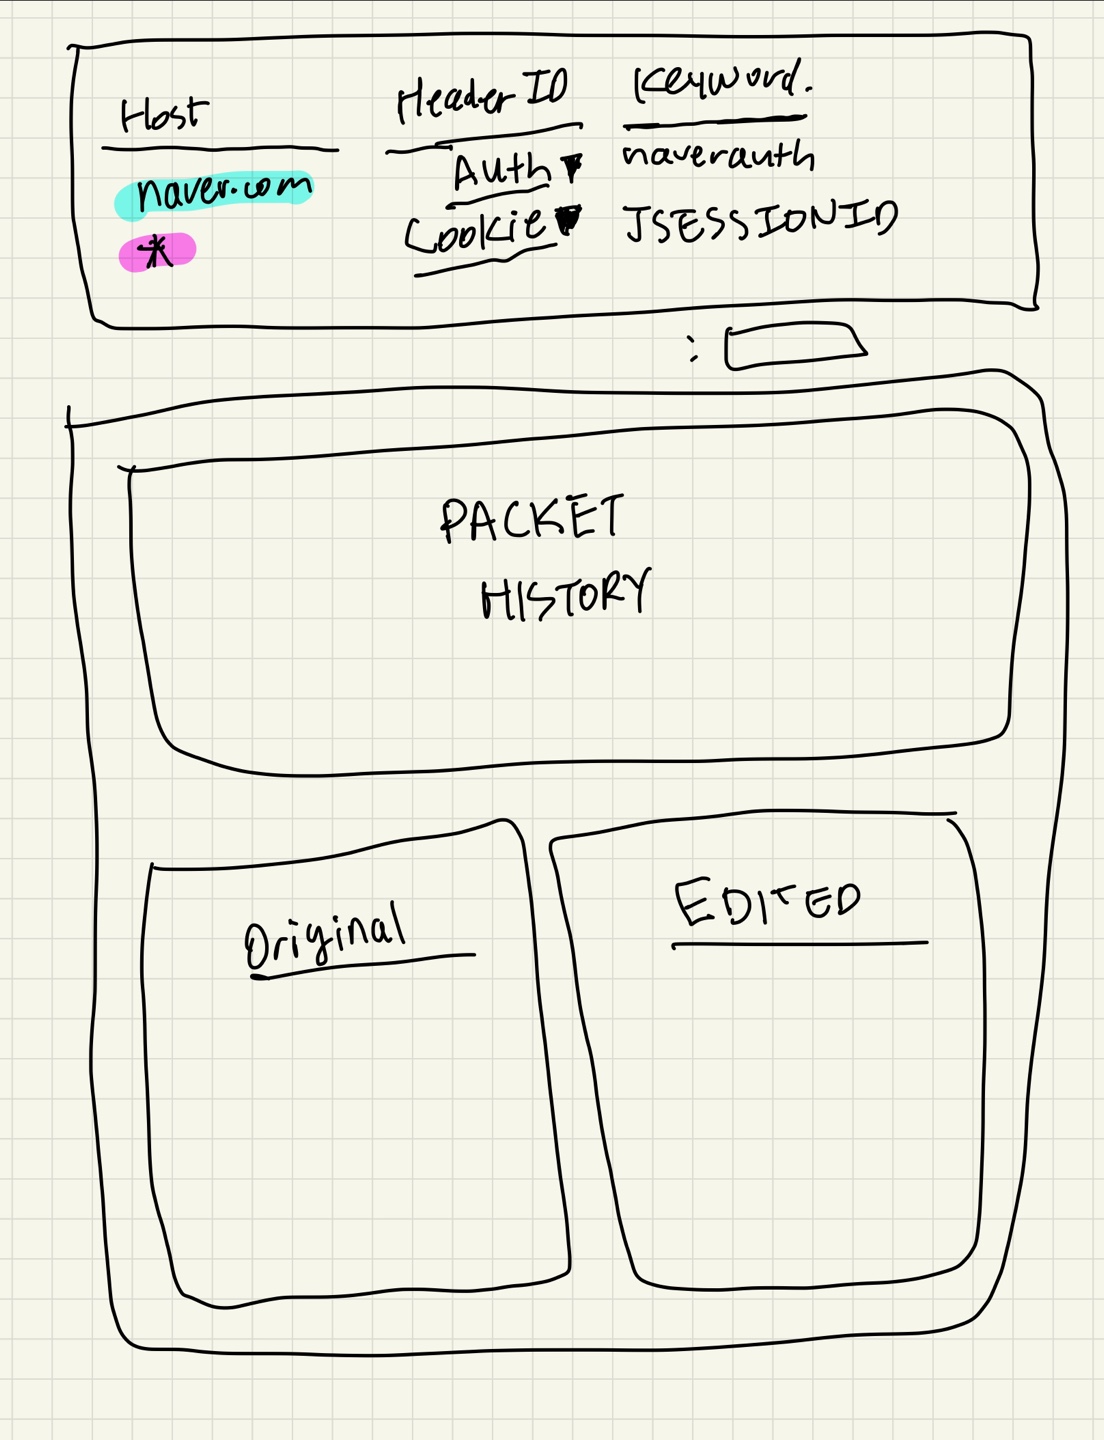 Host Header ID Keyword.
naver.com Auth▼ naverauth
* Cookie▼ JSESSIONID
:
PACKET
HISTORY
Original EDITED